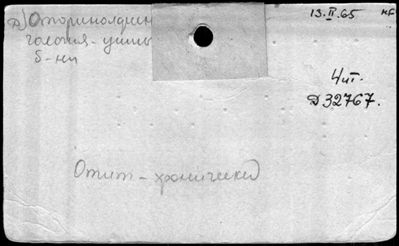 д) Оторинолярин
гология - ушны
б-ни
13.II.65 нг
4 ит.
Д 32767.
Отит - хронический